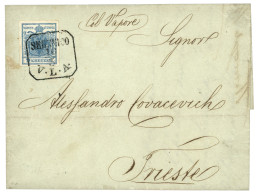 Col Vapore
Signor
SEBENICO
Alessandro Covacevich
Trieste